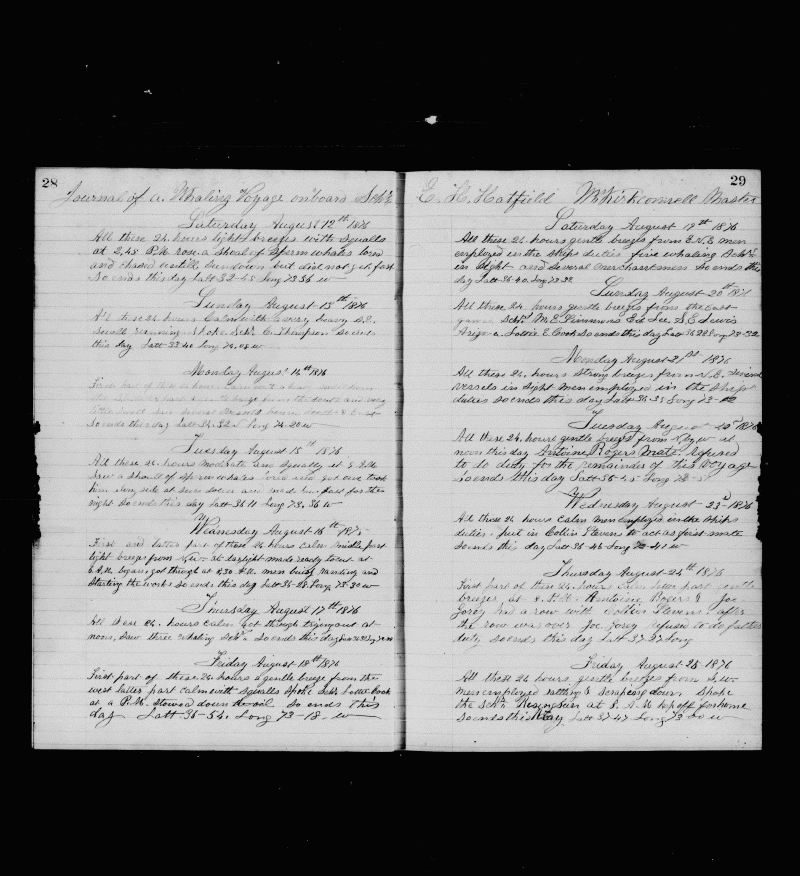 28
Journal of a Whaling Voyage onboard Schr
Saturday August 12th 1876
All these 24 hours light breezes with squalls
at 2,45 P.M. rose a shoal of Sperm whales lowd
and chased untill sundown but did not get fast
So ends this day Latt 32-45 Long 73 56 w
Sunday August 13th 1876
All these 24 hours Calm with a very heavy S.E.
Swell running Spoke Schr C. Thompson So ends
this day Latt 33 40 Long 74.08 w
Monday August 14th 1876
First part of these 24 hours
So ends this day Latt 34.32 Long 74.20 w
Tuesday August 15th 1876
All these 24 hours moderate and squally at
Saw a shoal of sperm whales lowd and got one took
him along side at
night So ends this day Latt 36 11 Long 73, 36 w
Wednesday August 16th 187
First and latter part of these 24 hours calm middle part
light breeze from at daylight made ready to cut at
6 A,M, began, got through at 8,30 A.M. men busy
Starting the works So ends this day Latt 36-28 Long 73-30 w
Thursday August 17th 1876
All these 24 hours calm got through trying out at
noon, Saw three whaling Schr So ends this day Latt
Friday August 18th 1876
First part of these 24 hours a gentle breeze from the
west latter part calm with squalls Spoke Schr Lottie Cook
at 2 P.M. Stowed down oil So ends this
day Latt 36-54, Long 73-18 w
29
E. H. Hatfield Master
Saturday August 19th 1876
All these 24 hours gentle breezes from E.N.E men
employed in the ships duties five whaling Schr
in Sight and several merchantmen So ends this
day Latt 36 40 Long 73-32
Sunday August 20th 187
All these 24 hours gentle breezes from the East
gamed Schr M.E. Simmons E.H. Lee S.E. Lewis
Lottie E. Cook So ends this day Latt 36 28 Long 73-32
Monday August 21st 1876
All these 24 hours strong breezes from N.E. Several
vessels in sight men employed in the Ships
duties So ends this day Latt 36-35 Long 73-
Tuesday August 1876
All these 24 hours gentle breeze from at
noon this day Antoine Rogers Mate, refused
to do duty for the remainder of this Voyage
So ends this day Latt 36-45 Long 73-
Wednesday August 23d 1876
All these 24 hours calm men employed in the ships
duties. put in Collin Stevens to act as first mate
So ends this day Latt 36-46 Long 72-41 w
Thursday August 24th 1876
First part of these 24 hours calm latter part gentle
breezes at P.M. Antoine Rogers & Joe
Corey had a row with Collin Stevens after
the row was over Joe Corey refused to do
duty So ends this day Latt 37-27 Long
Friday August 25 1876
All these 24 hours gentle breezes from
men employed ratling & Scraping down Spoke
the Schr Rising Sun at 8. A.M top off for home
So ends this day Latt 37-47 Long 73 w